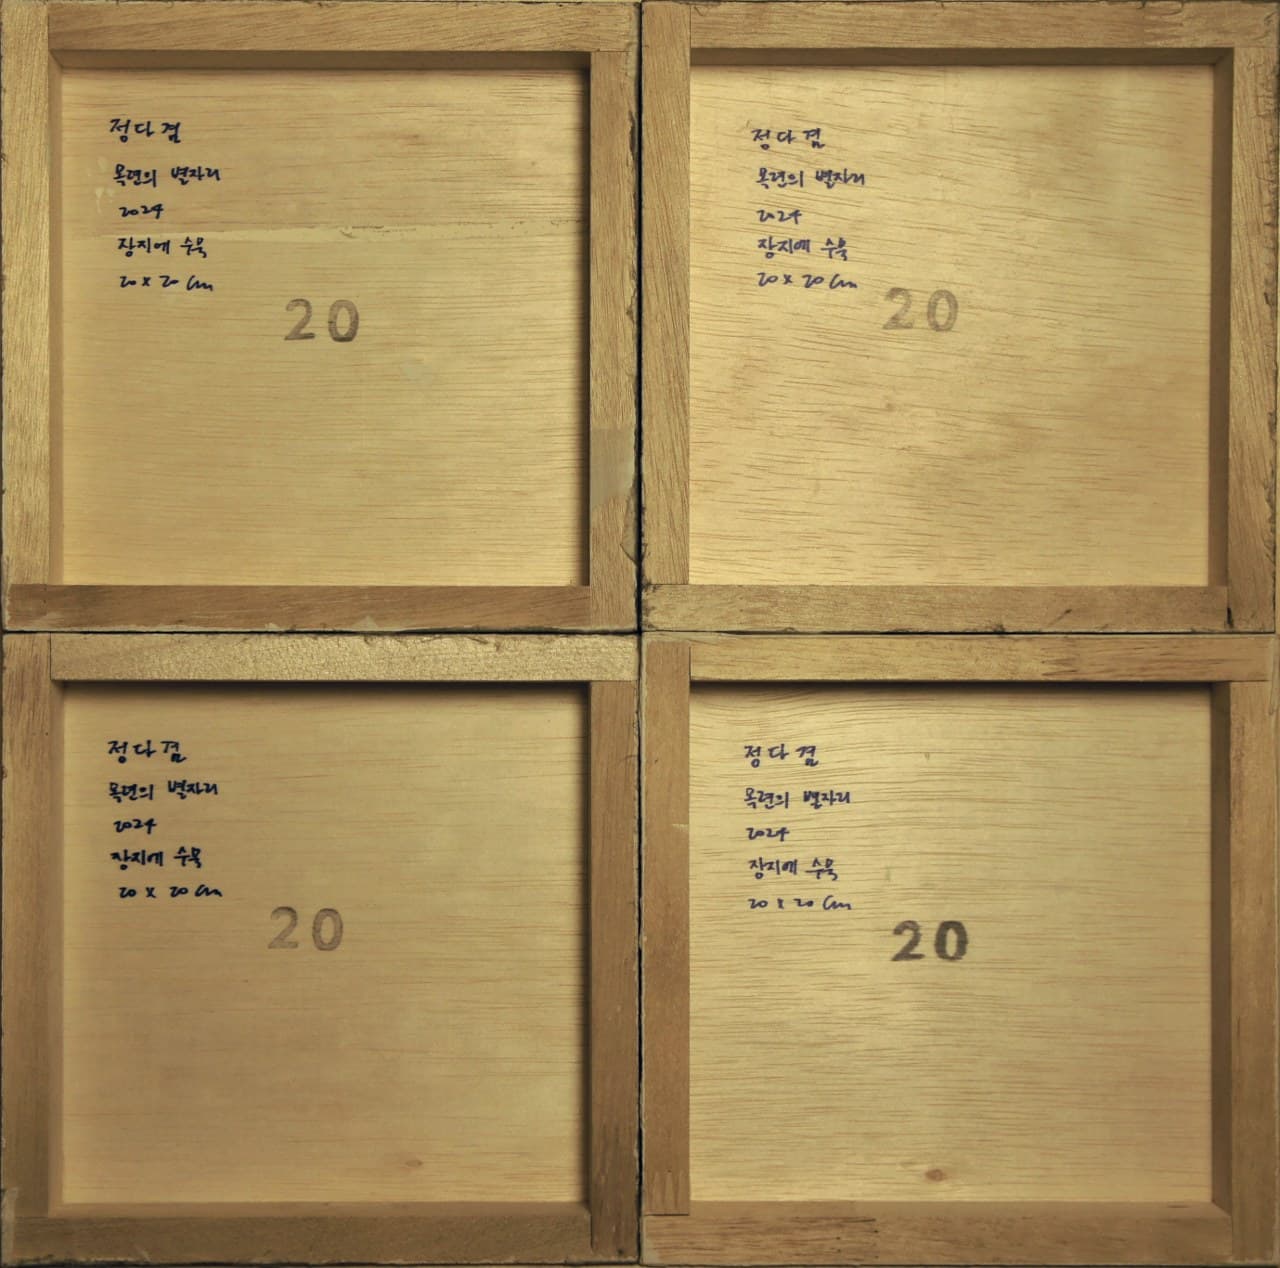 정다겸
목련의 별자리
2024
장지에 수묵
20 x 20 cm
20
정다겸
목련의 별자리
2024
장지에 수묵
20 x 20 cm
20
정다겸
목련의 별자리
2024
장지에 수묵
20 x 20 cm
20
정다겸
목련의 별자리
2024
장지에 수묵
20 x 20 cm
20